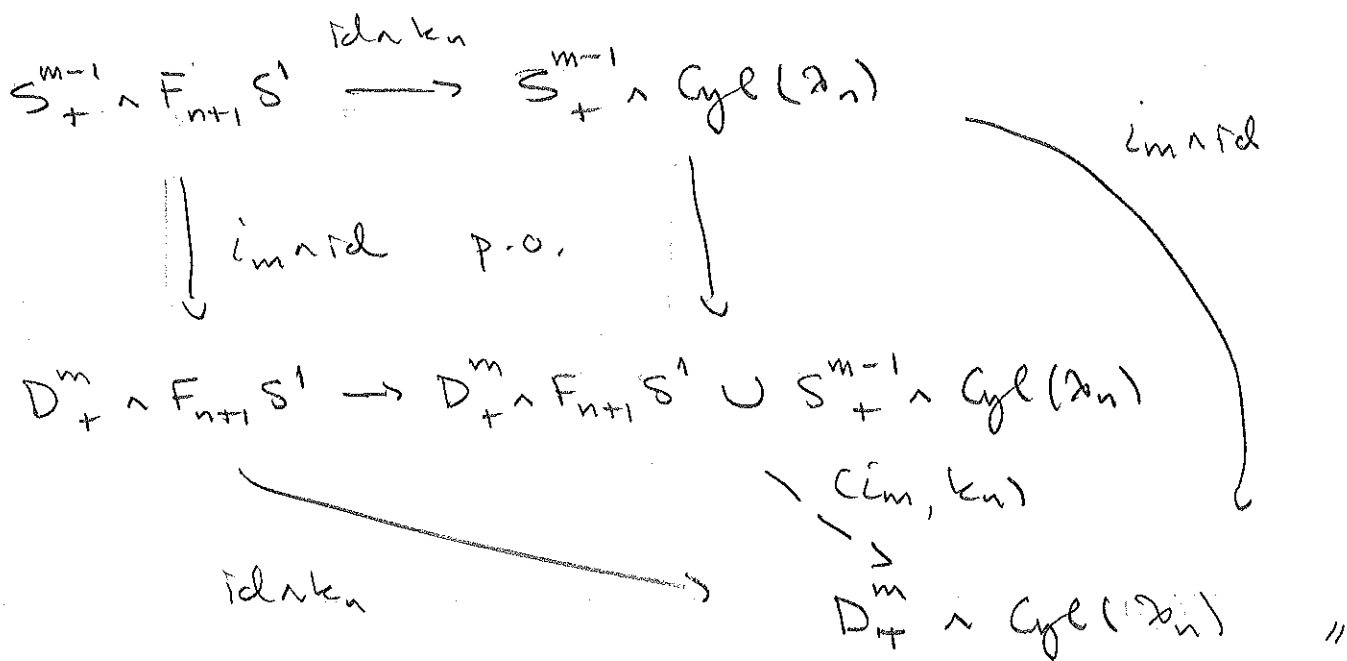 id∧kₙ
S₊ᵐ⁻¹ ∧ Fₙ₊₁ S¹ ⟶ S₊ᵐ⁻¹ ∧ Cyl(λₙ)
iₘ∧id
iₘ∧id p.o.
D₊ᵐ ∧ Fₙ₊₁ S¹ → D₊ᵐ ∧ Fₙ₊₁ S¹ ∪ S₊ᵐ⁻¹ ∧ Cyl(λₙ)
(iₘ, kₙ)
id∧kₙ
D₊ᵐ ∧ Cyl(λₙ) //